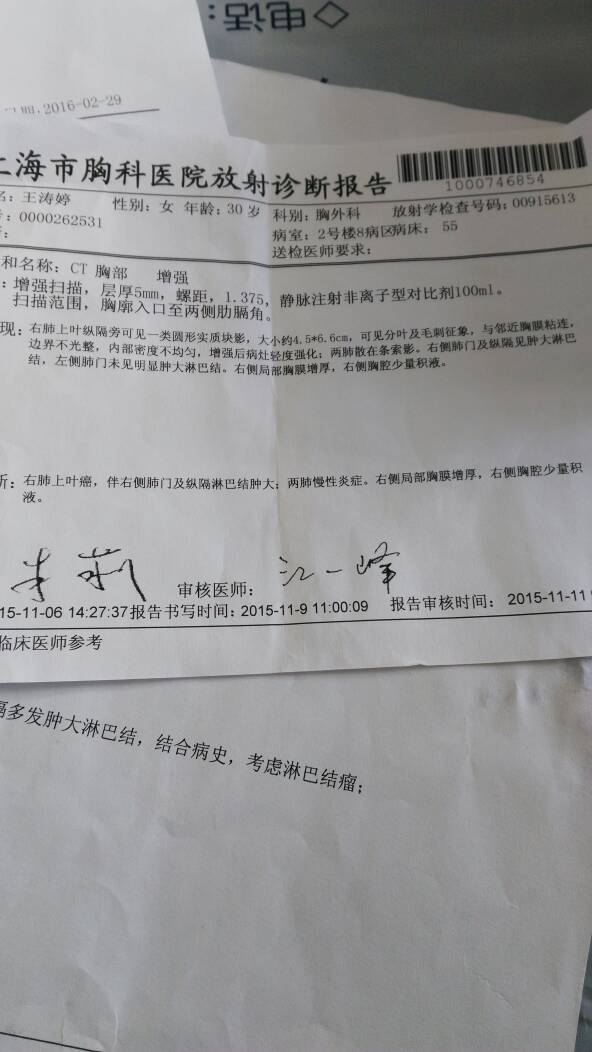 电话：
2016-02-29
上海市胸科医院放射诊断报告
1000746854
名：王涛婷 性别：女 年龄：30岁 科别：胸外科 放射学检查号码：00915613
号：0000262531 病室：2号楼8病区病床：55
送检医师要求：
和名称：CT 胸部 增强
：增强扫描，层厚5mm，螺距，1.375，静脉注射非离子型对比剂100ml。
扫描范围，胸廓入口至两侧肋膈角。
现：右肺上叶纵隔旁可见一类圆形实质块影，大小约4.5*6.6cm，可见分叶及毛刺征象，与邻近胸膜粘连，
边界不光整，内部密度不均匀，增强后病灶轻度强化；两肺散在条索影。右侧肺门及纵隔见肿大淋巴
结，左侧肺门未见明显肿大淋巴结。右侧局部胸膜增厚，右侧胸腔少量积液。
断：右肺上叶癌，伴右侧肺门及纵隔淋巴结肿大；两肺慢性炎症。右侧局部胸膜增厚，右侧胸腔少量积
液。
审核医师：江一峰
15-11-06 14:27:37报告书写时间：2015-11-9 11:00:09 报告审核时间： 2015-11-11
临床医师参考
隔多发肿大淋巴结，结合病史，考虑淋巴结瘤；